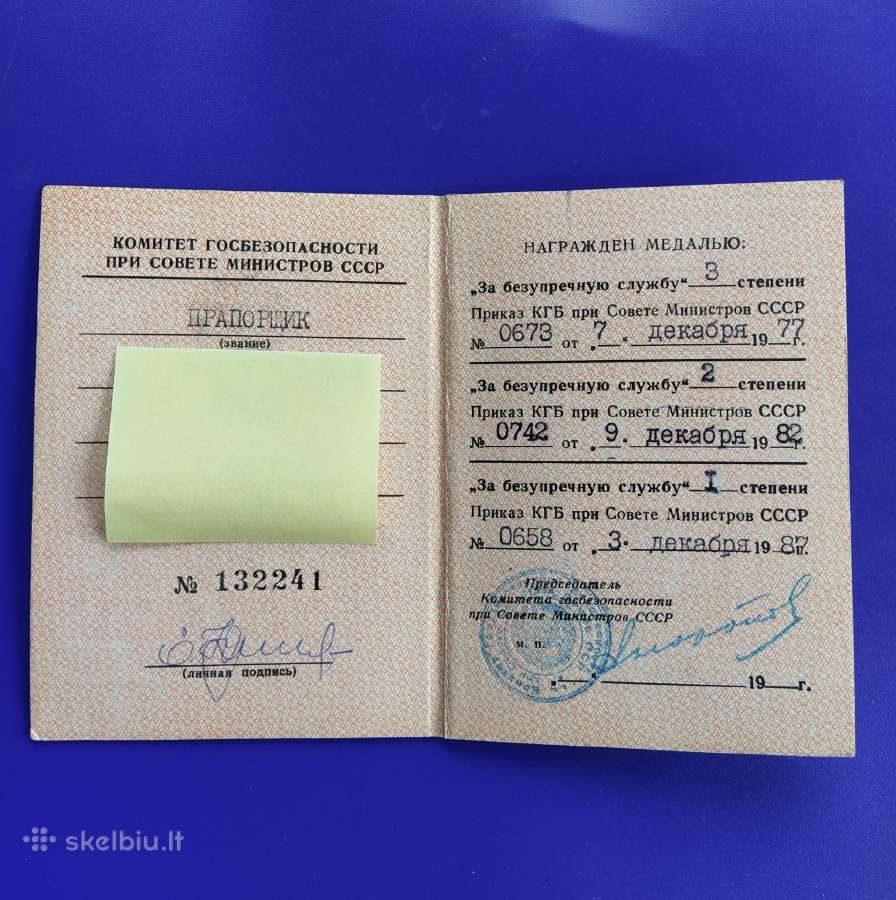 КОМИТЕТ ГОСБЕЗОПАСНОСТИ
ПРИ СОВЕТЕ МИНИСТРОВ СССР
ПРАПОРЩИК
(звание)
№ 132241
(личная подпись)
НАГРАЖДЕН МЕДАЛЬЮ:
„За безупречную службу“ 3 степени
Приказ КГБ при Совете Министров СССР
№ 0673 от „7“ декабря 1977г.
„За безупречную службу“ 2 степени
Приказ КГБ при Совете Министров СССР
№ 0742 от „9“ декабря 1982г.
„За безупречную службу“ I степени
Приказ КГБ при Совете Министров СССР
№ 0658 от „3“ декабря 1987г.
Председатель
Комитета госбезопасности
при Совете Министров СССР
м. п.
19 г.
skelbiu.lt